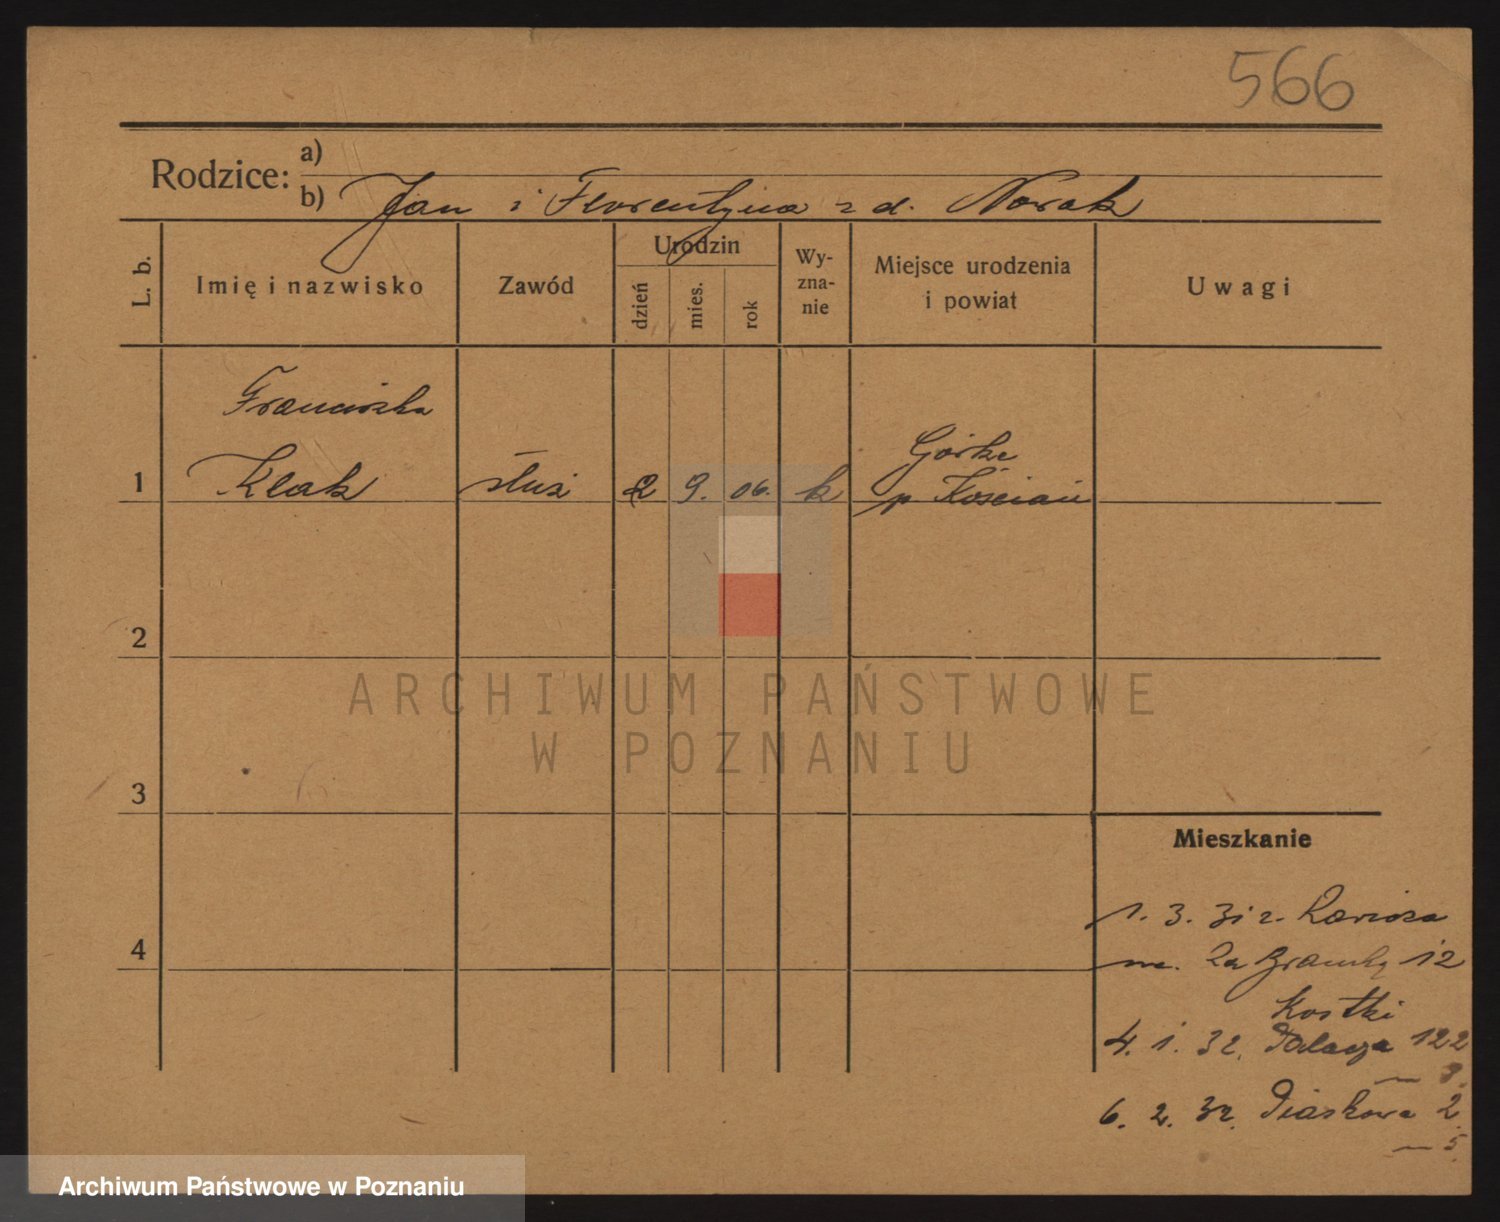 566
Rodzice: a)
b) Jan i Florentyna z d. Nowak
L. b.
Imię i nazwisko
Zawód
Urodzin
dzień
mies.
rok
Wy-
zna-
nie
Miejsce urodzenia
i powiat
Uwagi
Franciszka
1 Klak służ 2 9. 06. k
Górka
p. Kościan
2
3
4
ARCHIWUM PAŃSTWOWE
W POZNANIU
Mieszkanie
1. 3. 31 z.
Za Bramką 12
Kostki
4. 1. 32. Palacza 122
8.
6. 2. 32. Piaskowa 2
5.
Archiwum Państwowe w Poznaniu